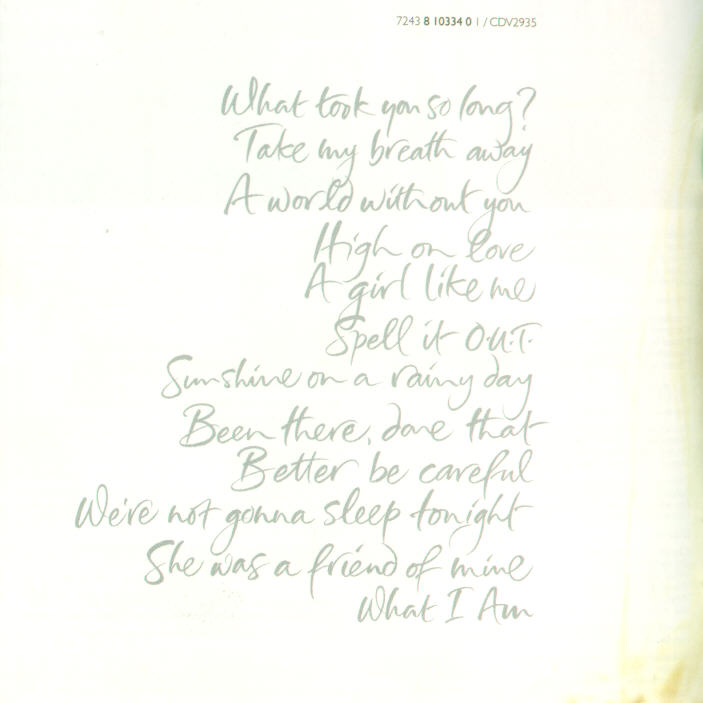 7243 8 10334 0 1 / CDV2935
What took you so long?
Take my breath away
A world without you
High on love
A girl like me
Spell it O.U.T.
Sunshine on a rainy day
Been there, done that
Better be careful
We're not gonna sleep tonight
She was a friend of mine
What I Am